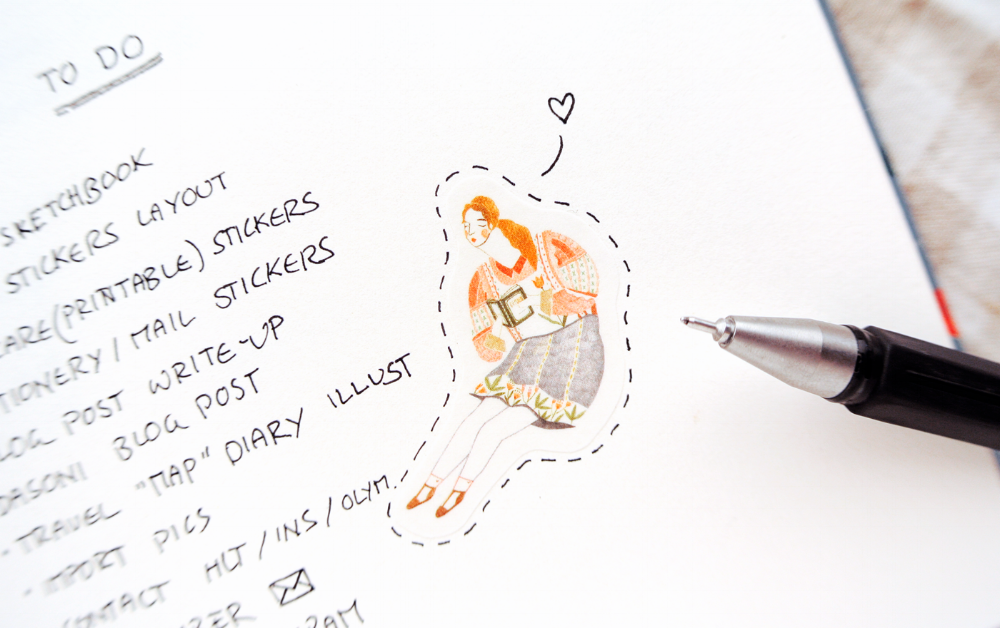 TO DO
SKETCHBOOK
STICKERS LAYOUT
(PRINTABLE) STICKERS
/ MAIL STICKERS
POST WRITE-UP
BLOG POST
- TRAVEL "MAP" DIARY ILLUST
- IMPORT PICS
CONTACT HLT / INS / OLYM.